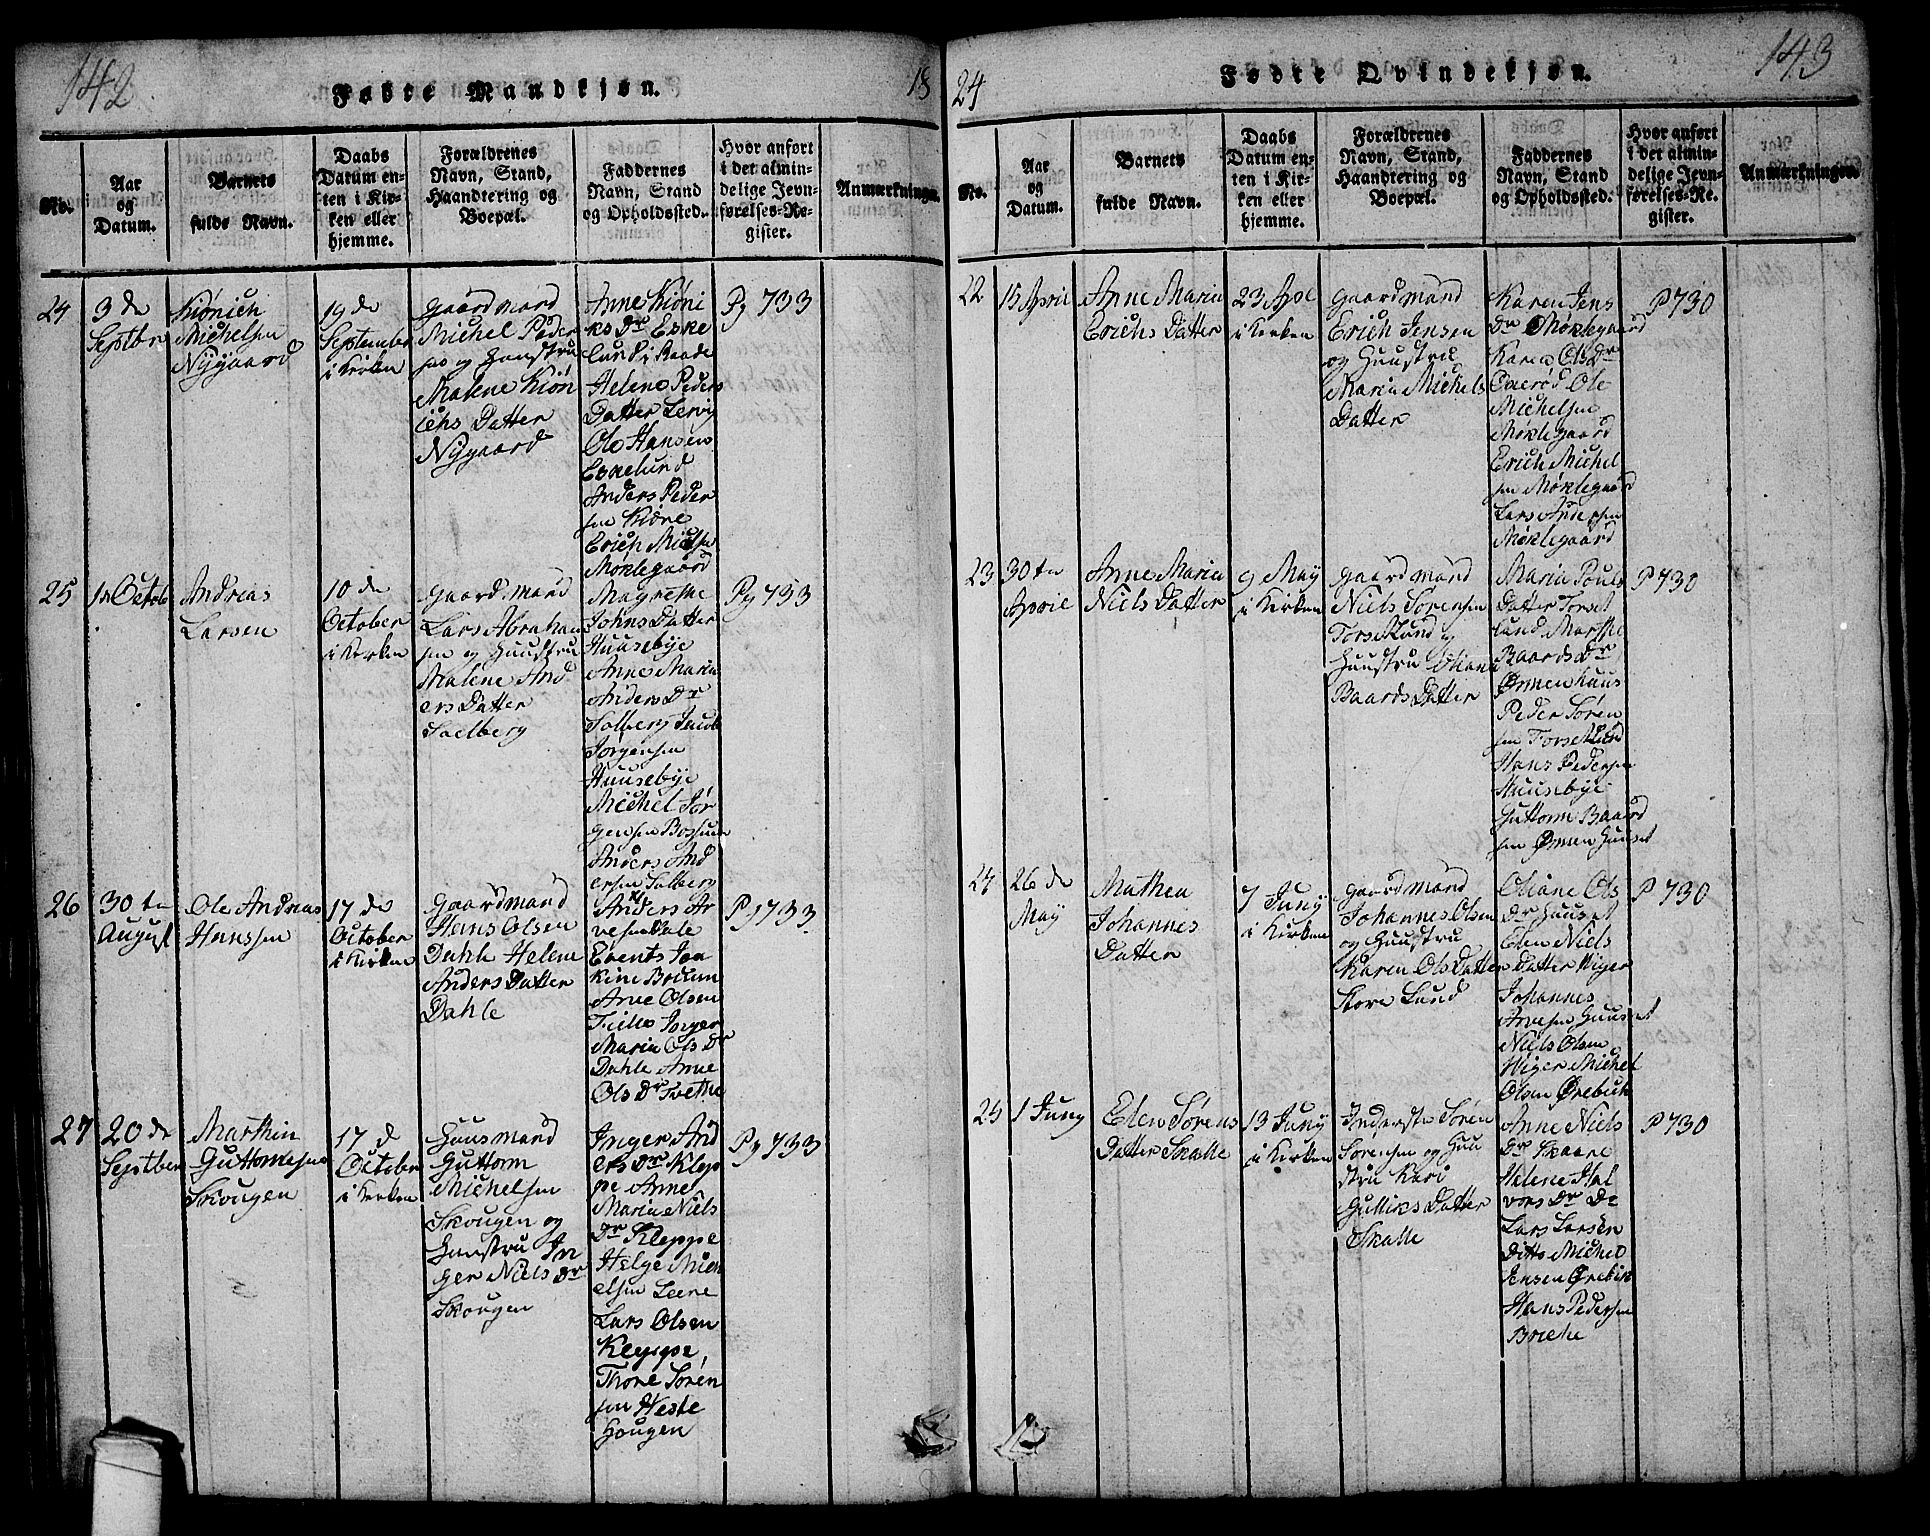 142
Fødte Mandkjøn.
18
No.
Aar
og
Datum.
Barnets
fulde Navn.
Daabs
Datum en-
ten i Kir-
ken eller
hjemme.
Forældrenes
Navn, Stand,
Haandtering og
Boepæl.
Faddernes
Navn, Stand
og Opholdssted.
Hvor anført
i det almin-
delige Jevn-
førelses-Re-
gister.
Anmærkninger.
24
3 de
Septbr
Kiönich
Michelsen
Nÿgaard
19 de
September
i Kirken
Gaardmand
Michel Peder
sen og Huustru
Malene Kiön
ichs Datter
Nÿgaard
Anne Kiöni
ks Dr Eske
lund i Raade
Helene Peders
Datter Lervig
Ole Hansen
Eskelund
Anders Peder
sen Kiöne
Erich Michelsen
Møklegaard
Pg 733
25
1 Octob
Andreas
Larsen
10 de
October
i Kirken
Gaardmand
Lars Abraham
sen og Huustru
Malene And
ers Datter
Soelberg
Magrethe
Johns Datter
Huusebÿe
Anne Maria
Anders Dr
Solberg Jacob
Jørgensen
Huusebÿe
Michel Jör
gensen
Anders And
ersen Solberg
Pg 733
26
30 te
August
Ole Andreas
Hanssen
17 de
October
i Kirken
Gaardmand
Hans Olsen
Dahle Helene
Anders Datter
Dahle
Anders Ar
vesen
Arve Olsen
Maria Ols Dr
Dahle Anne
Ols Dr Tvethe
Pg 733
27
20 de
Septber
Marthin
Guttormsen
Skougen
17 d
October
i Kirken
Huusmand
Guttorm
Michelsen
Skougen og
Huustru In
ger Niels Dr
Skougen
Inger And
ers Dr Klep
pe Anne
Maria Niels
Dr Kleppe
Helge Mich
elsen Leene
Lars Olsen
Kleppe,
Thore Sören
sen Weste
Hougen
Pg 733
24
Fødte Qvindekjøn.
143
No.
Aar
og
Datum.
Barnets
fulde Navn.
Daabs
Datum en-
ten i Kir-
ken eller
hjemme.
Forældrenes
Navn, Stand,
Haandtering og
Boepæl.
Faddernes
Navn, Stand
og Opholdssted.
Hvor anført
i det almin-
delige Jevn-
førelses-Re-
gister.
Anmærkninger.
22
15 April
Anne Maria
Erichs Datter
23 Apl
i Kirken
Gaardmand
Erich Jensen
og Huustru
Maria Michels
Datter
Karen Jens
Dr Møklegaard
Karen Ols Dr
Enerød Ole
Michelsen
Møklegaard
Erich Michel
sen Møklegaard
Lars Andersen
Møklegaard
P 730
23
30 te
April
Anne Maria
Niels Datter
9 Maÿ
i Kirken
Gaardmand
Niels Sörensen
Torsetlund og
Huustru Oliana
Baards Datter
Maria Pouls
Datter Torset
lund Marthe
Baards Dr
Ørmenhuus
Peder Sören
sen Torsetlund
Hans Pedersen
Huusebÿe
Guttorm Baard
sen Ørmenhuuset
P 730
24
26 de
Maÿ
Mathea
Johannes
Datter
7 Junÿ
i Kirken
Gaardmand
Johannes Olsen
og Huustru
Karen Ols Datter
Store Lund
Oliane Ols
Dr Huuset
Elen Niels
Datter Wiger
Johannes
Arvesen Huuset
Niels Olsen
Wiger Michel
Olsen Ørebæk
P 730
25
1 Junÿ
Elen Sørens
Datter Skalle
13 Junÿ
i Kirken
Inderste Sören
Sörensen og Huu
stru Kari
Gulliks Datter
Skalle
Anne Niels
Dr Skaare
Helene Hal
vors Dr Do
Lars Larsen
Ditto Michel
Jensen Ørebæk
Hans Pedersen
P 730